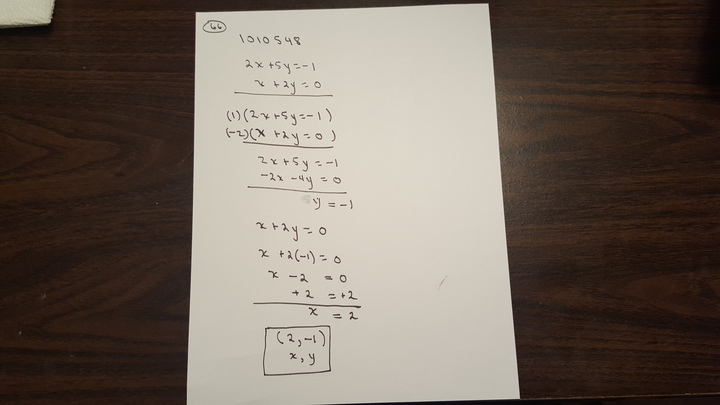 66
1010548
2x+5y=-1
x+2y=0
(1)(2x+5y=-1)
(-2)(x+2y=0)
2x+5y=-1
-2x-4y=0
y=-1
x+2y=0
x+2(-1)=0
x-2=0
+2=+2
x=2
(2,-1)
x,y